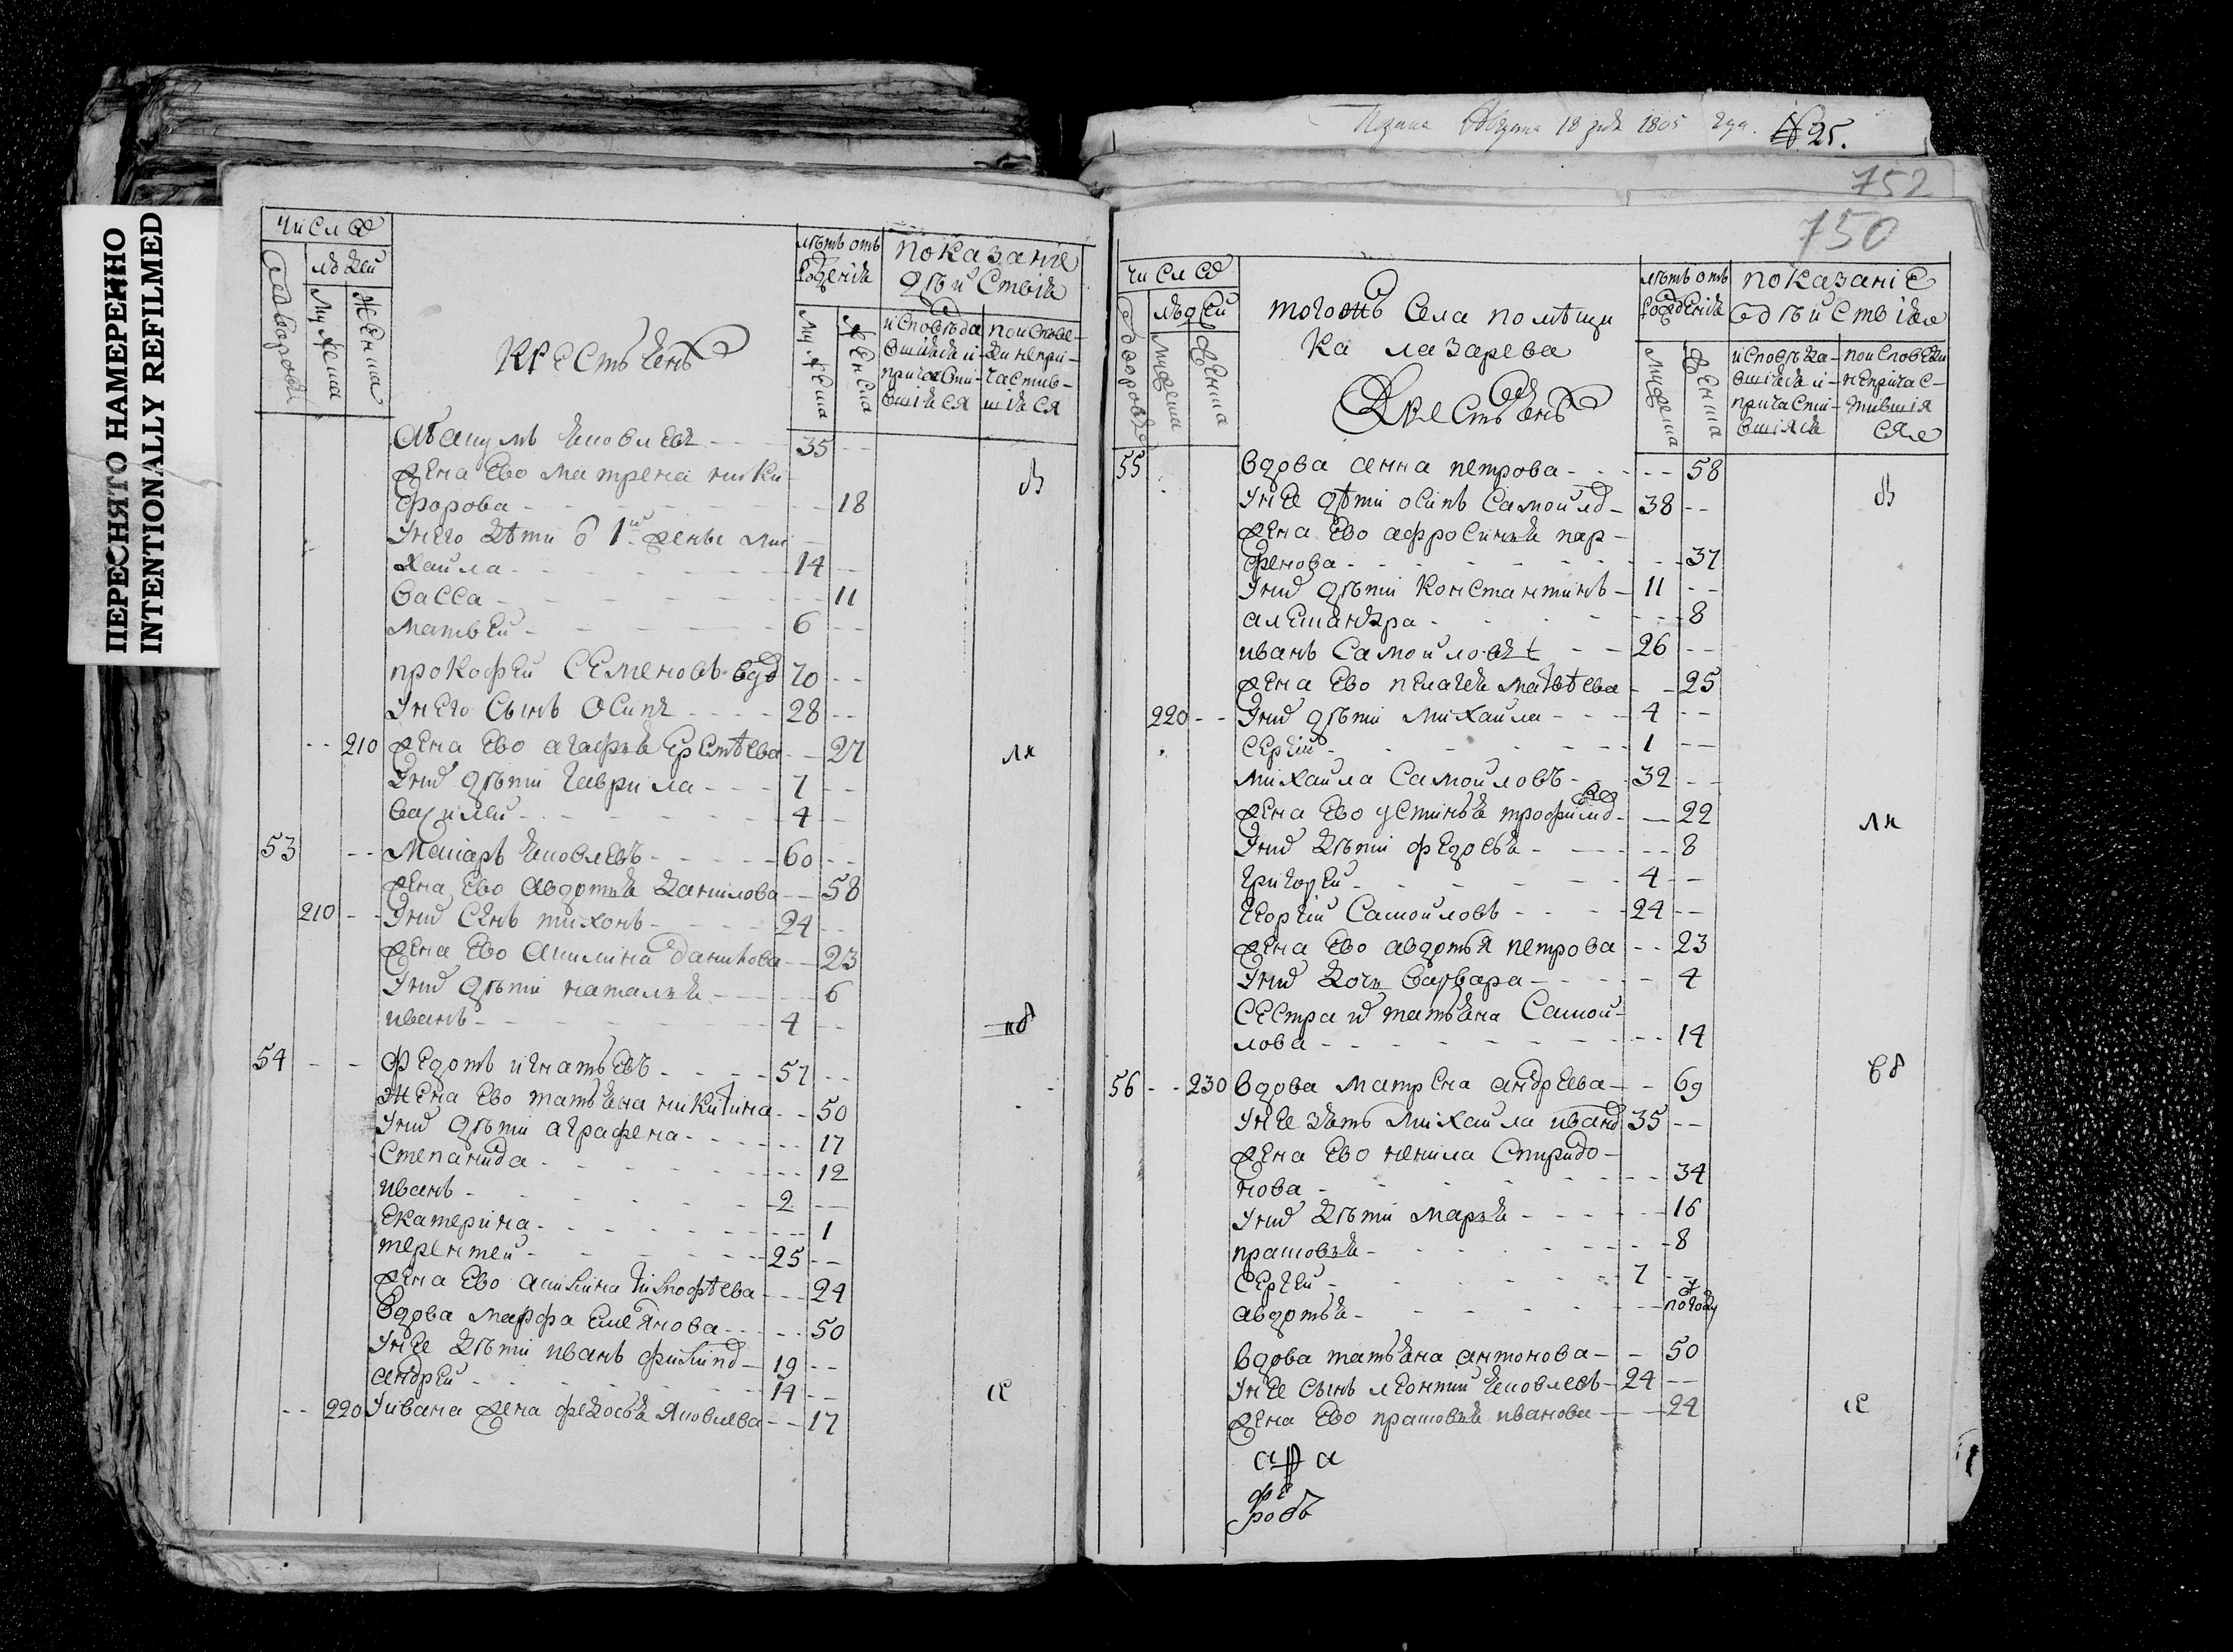 ПЕРЕСНЯТО НАМЕРЕННО
INTENTIONALLY REFILMED
числа
людей
мужеска
женска
крестьянъ
лѣтъ отъ
рожденія
показаніе
дѣйствія
исповѣда
вшіяся и
причасти
вшіяся
по испове
ди непри-
частив-
шіяся
Яковлевъ - - - 35 - -
жена Ево матрена ники
форова - - - 18
Унего дѣти ѿ 1й жены ми
хаила - - - 14 - -
васса - - - 11
матвей - - - 6 - -
прокофеи Семеновъ вдо 70 - -
Унего сынъ Осипъ - - - 28 - -
- - 210 жена Ево агафья Еремѣева - - 27
Уних дѣти гаврила - - - 7 - -
василеи - - - 4 - -
53 - - Макаръ Яковлевъ - - - 60 - -
жена Ево авдотья данилова - - 58
210 - - Уних сынъ тихонъ - - - 24 - -
жена Ево Акилина - - 23
Уних дѣти наталья - - - 6
иванъ - - - 4 - -
54 - - федотъ игнатьевъ - - - 57 - -
Жена Ево татьяна никитина - - 50
Уних дѣти аграфена - - - 17
Степанида - - - 12
иванъ - - - 2 - -
Екатерина - - - 1
терентеи - - - 25 - -
жена Ево акилина тимофѣева - - - 24
вдова марфа Емельянова - - - 50
Унее дѣти иванъ филип - 19 - -
андреи - - - 14 - -
- - 220 Уивана жена федосья Яковлева - - 17
Августа 18 дня 1805 года. № 25.
752
750
числа
людей
мужеска
женска
тогожъ села помѣщи
ка лазарева
Крестьянъ
лѣтъ отъ
рожденія
показаніе
дѣйствія
исповѣда-
вшіяся и-
причасти-
вшіяся
по исповеди
непричас-
тившія
ся
55 вдова анна петрова - - - - 58
Унее дѣти осипъ Самойло - 38 - -
жена Ево афросинья пар-
фенова - - - 37
Уних дѣти Константинъ - 11 - -
александра - - - 8
иванъ Самойловъ - - 26 - -
жена Ево пелагея матвѣева - - 25
220 - - Уних дѣти михаила - - - 4 - -
Сергіи - - - 1 - -
михаила Самойловъ - - 32 - -
жена Ево устинья трофимо - - 22
Уних дѣти федосья - - - 8
григореи - - - 4 - -
георгіи Самойловъ - - - 24 - -
жена Ево авдотья петрова - - 23
Уних дочь варвара - - - 4
Сестра их татьяна Самой-
лова - - - 14
56 - - 230 вдова матрена андреева - - 69
Унее зять михаила ивано 35 - -
жена Ево ненила Спиридо-
нова - - - 34
Уних дѣти марья - - - 16
прасковья - - - 8
Сергеи - - - 7 - -
авдотья - - - полгоду
вдова татьяна антонова - - 50
Унее сынъ леонтии Яковлевъ - 24 - -
жена Ево прасковья иванова - - 24